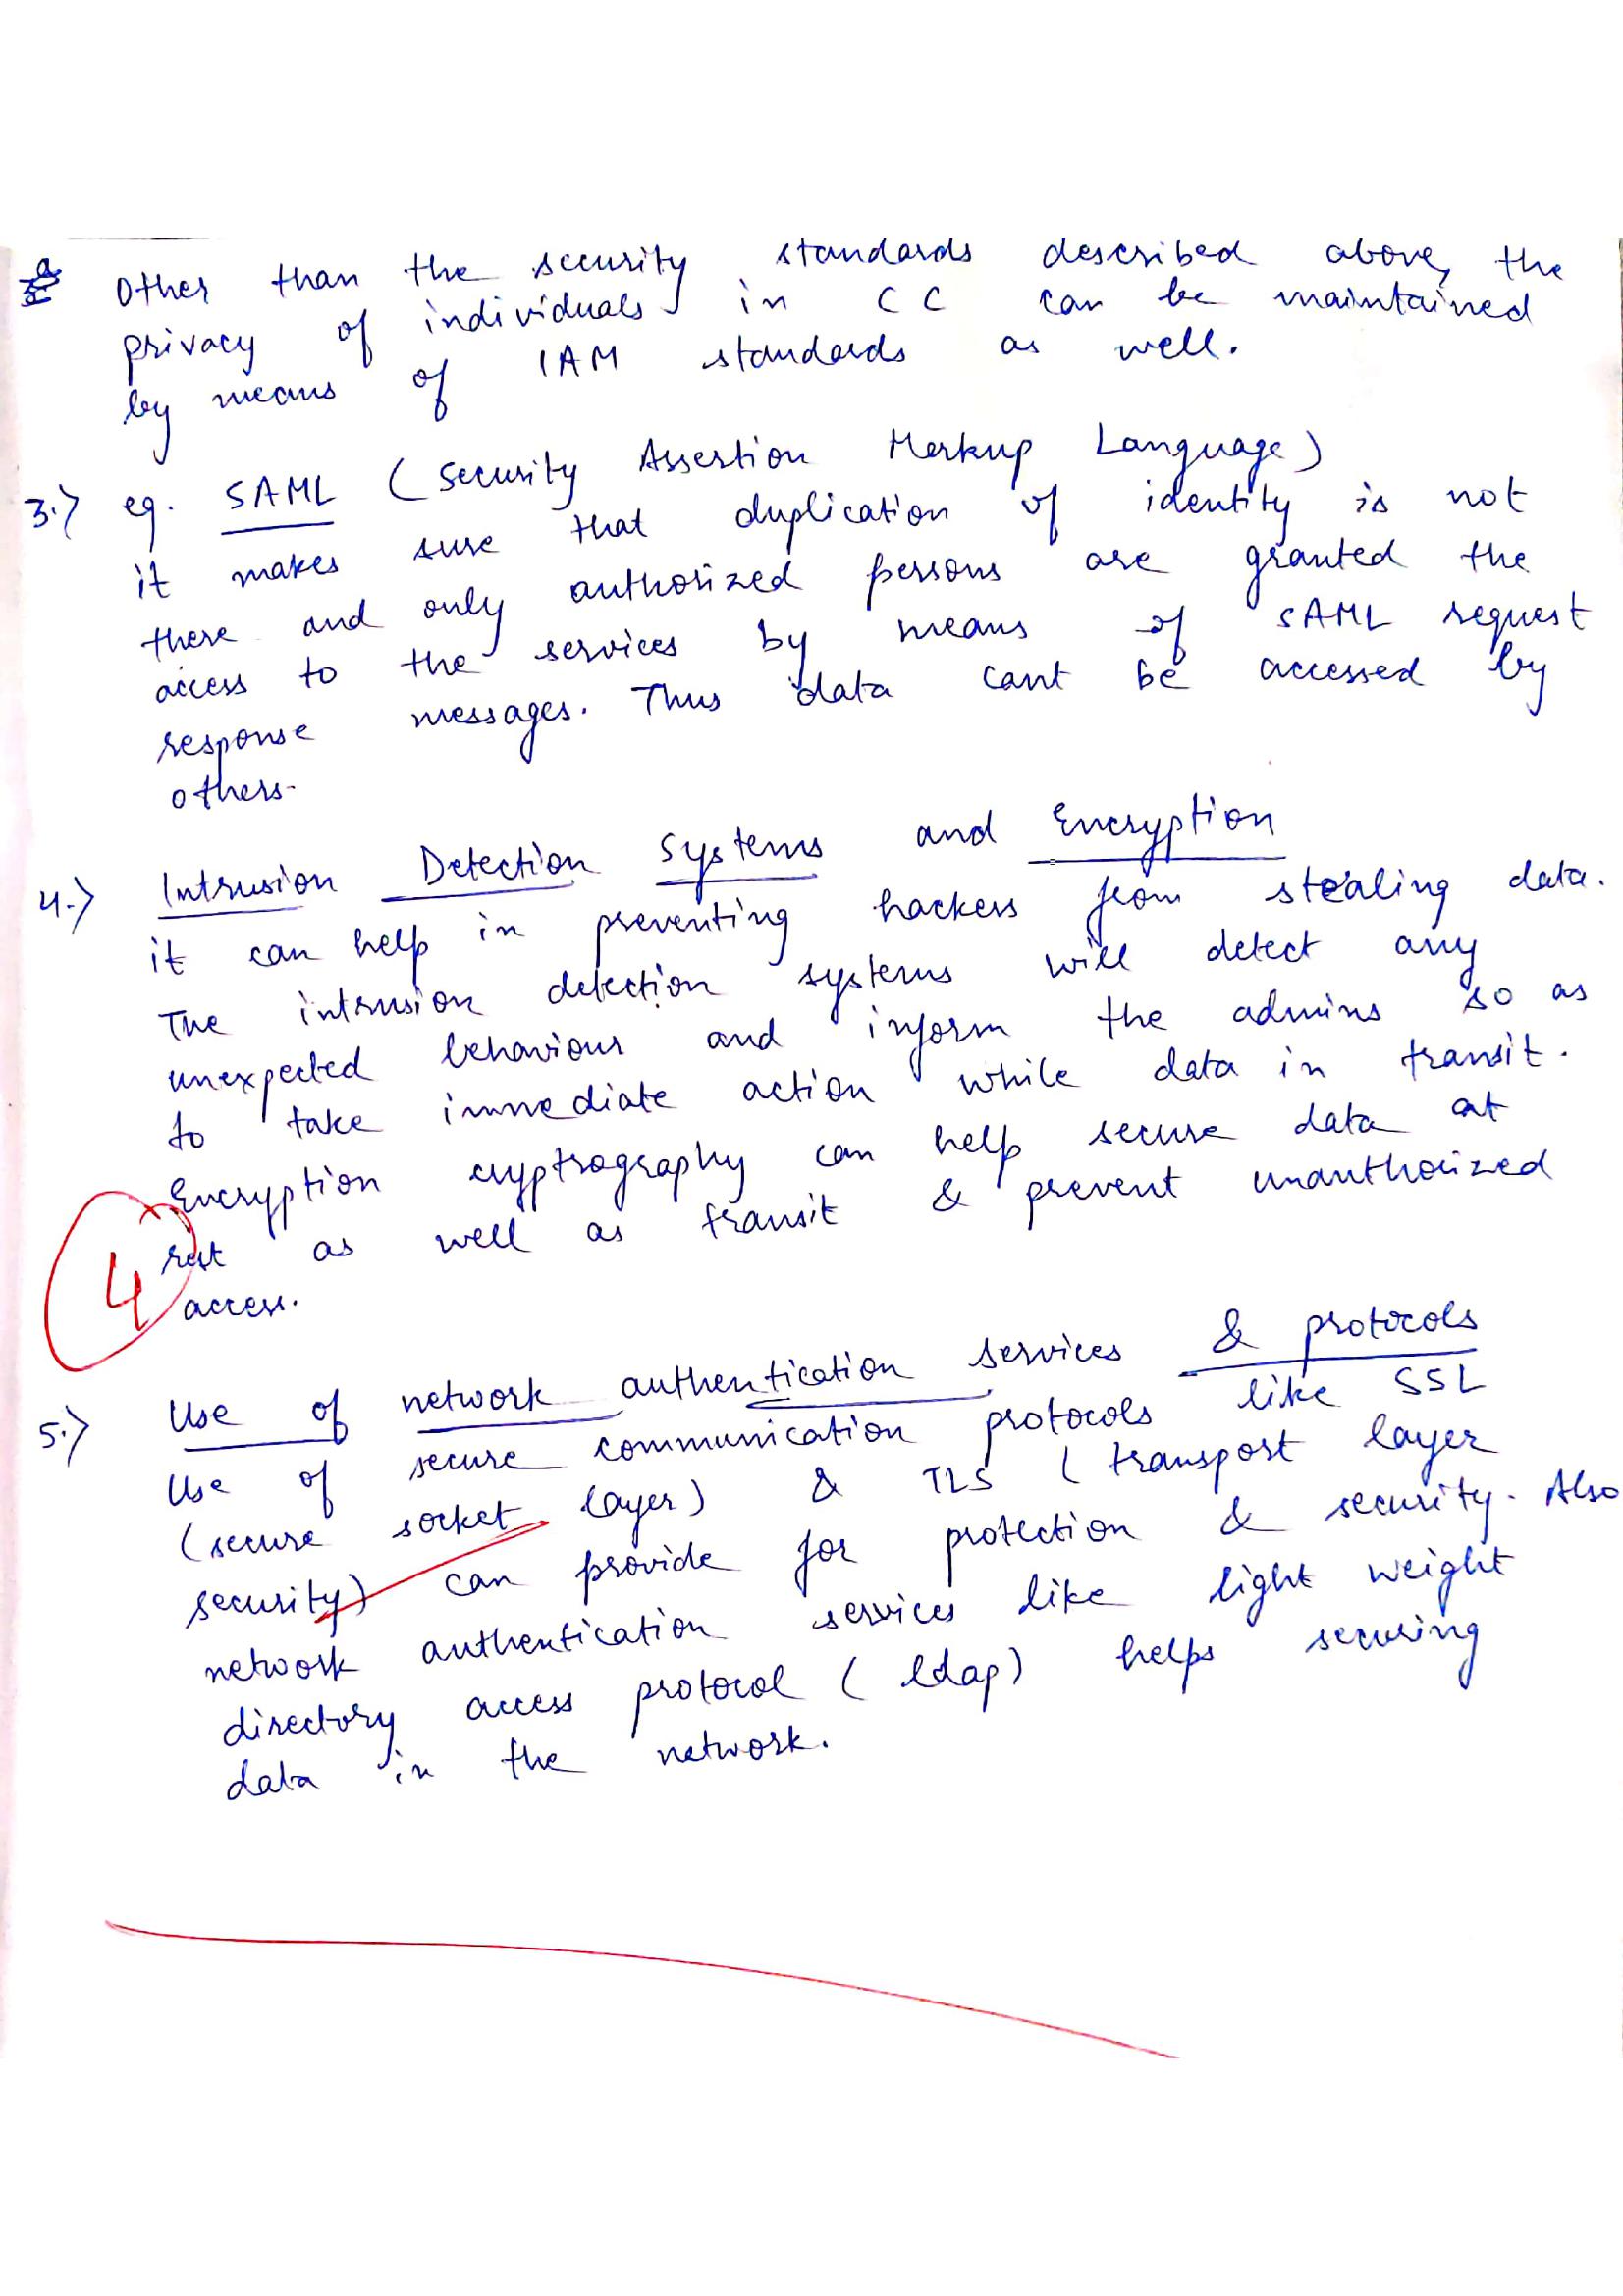 Other than the security standards described above, the
privacy of individuals in CC can be maintained
by means of IAM standards as well.
3.) eg. SAML (Security Assertion Markup Language)
it makes sure that duplication of identity is not
there and only authorized persons are granted the
access to the services by means of SAML request
response messages. Thus data cant be accessed by
others.
4.) Intrusion Detection Systems and Encryption
it can help in preventing hackers from stealing data.
The intrusion detection systems will detect any
unexpected behaviour and inform the admins so as
to take immediate action while data in transit.
Encryption cryptrography can help secure data at
rest as well as transit & prevent unauthorized
access.
4
5.) Use of network authentication services & protocols
Use of secure communication protocols like SSL
(secure socket layer) & TLS (transport layer
security) can provide for protection & security. Also
network authentication services like light weight
directory access protocol (ldap) helps securing
data in the network.